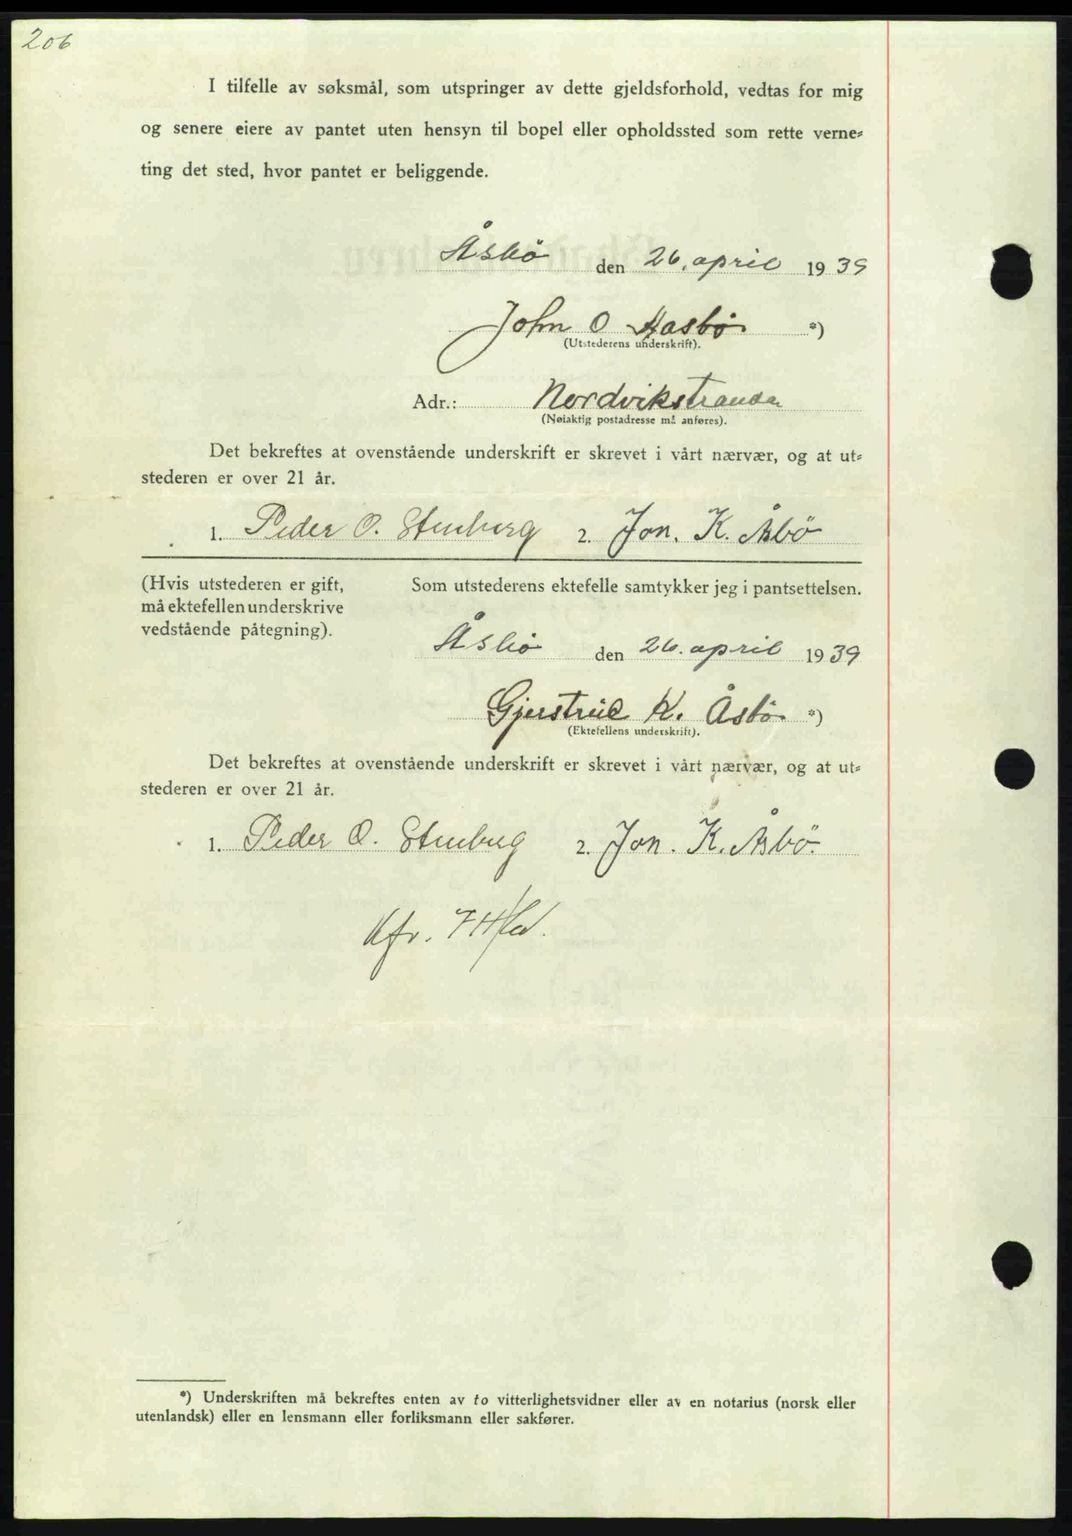 206
I tilfelle av søksmål, som utspringer av dette gjeldsforhold, vedtas for mig
og senere eiere av pantet uten hensyn til bopel eller opholdssted som rette verne=
ting det sted, hvor pantet er beliggende.
Åsbö den 26. april 1939
John O Aasbø *)
(Utstederens underskrift).
Adr.: Nordvikstranda
(Nøiaktig postadresse må anføres).
Det bekreftes at ovenstående underskrift er skrevet i vårt nærvær, og at ut=
stederen er over 21 år.
1. Peder O. Stenberg 2. Jon. K. Åsbö
(Hvis utstederen er gift,
må ektefellen underskrive
vedstående påtegning).
Som utstederens ektefelle samtykker jeg i pantsettelsen.
Åsbö den 26. april 1939
Gjertrud K. Åsbø *)
(Ektefellens underskrift).
Det bekreftes at ovenstående underskrift er skrevet i vårt nærvær, og at ut=
stederen er over 21 år.
1. Peder O. Stenberg 2. Jon. K. Åsbö.
Kfr.
*) Underskriften må bekreftes enten av to vitterlighetsvidner eller av en notarius (norsk eller
utenlandsk) eller en lensmann eller forliksmann eller sakfører.